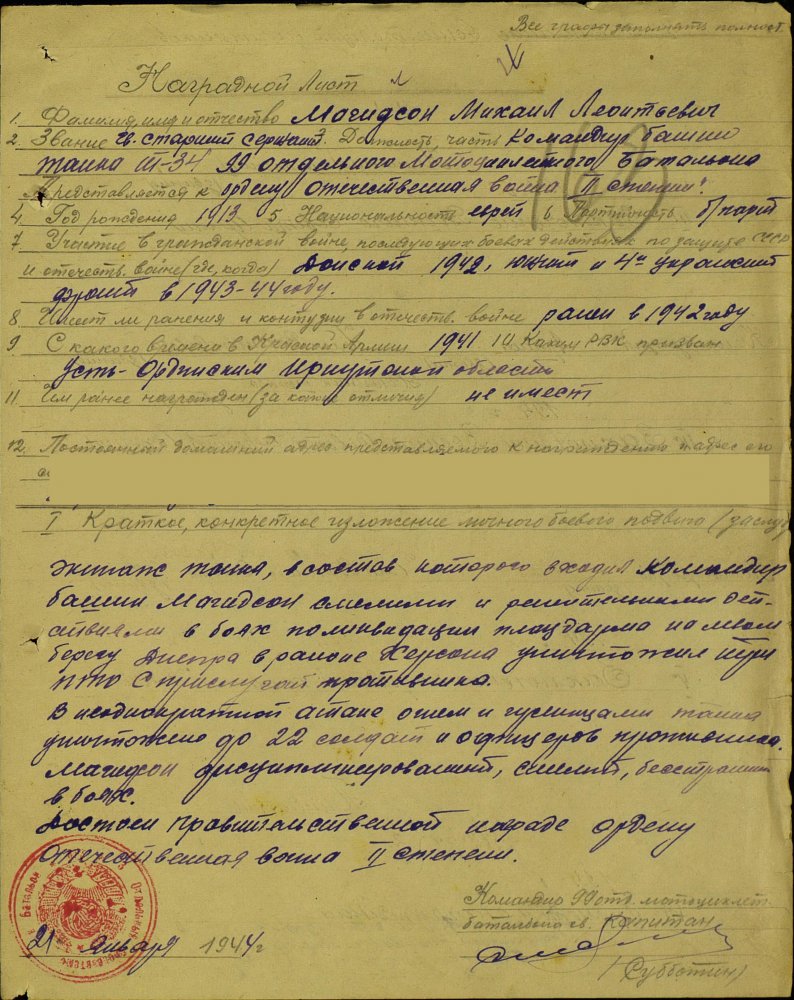 Все графы заполнять полност.
Наградной Лист
1. Фамилия имя и отчество Магидсон Михаил Леонтьевич
2. Звание гв. старший сержант. Должность, часть Командир башни
танка Т-34 99 отдельного Мотоциклетного Батальона
Представляется к ордену Отечественная война II степени".
4. Год рождения 1913 5 Национальность еврей 6 Партийность б/парт
7. Участие в гражданской войне, последующих боевых действиях по защите СССР
и отечеств. войне (где, когда) Донской 1942, Южный и 4й украинский
фронт в 1943-44 году.
8 Имеет ли ранения и контузии в отечеств. войне ранен в 1942 году
9 С какого времени в Красной Армии 1941 10 Каким РВК призван
Усть-Ордынским Иркутской области
11 Чем ранее награжден (за какие отличия) не имеет
12. Постоянный домашний адрес представляемого к награждению и адрес его
I Краткое, конкретное изложение личного боевого подвига (заслуг)
Экипаж танка, в состав которого входил Командир
башни Магидсон смелыми и решительными дей-
ствиями в боях по ликвидации плацдарма на левом
берегу Днепра в районе Херсона уничтожил три
ПТО с прислугой противника.
В неоднократной атаке огнем и гусеницами танка
уничтожено до 22 солдат и офицеров противника.
Магидсон дисциплинированный, смелый, бесстрашный
в боях.
Достоен правительственной награде ордену
Отечественная война II степени.
Командир 99 отд. мотоциклет.
батальона гв. Капитан
21 января 1944 г
/Субботин/
Батальон